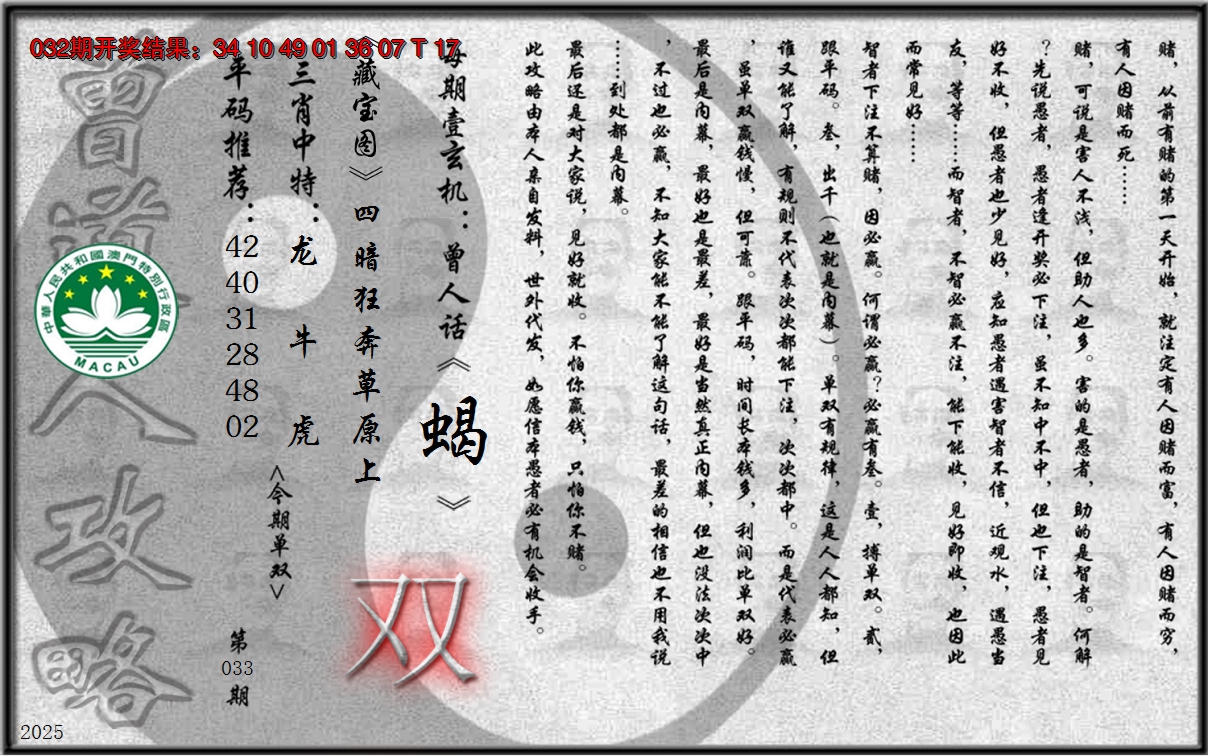 032期开奖结果：34 10 49 01 36 07 T 17
赌，从前有赌的第一天开始，就注定有人因赌而富，有人因赌而穷，
有人因赌而死……
赌，可说是害人不浅，但助人也多。害的是愚者，助的是智者。何解
？先说愚者，愚者逢开奖必下注，虽不知中不中，但也下注，愚者见
好不收，但愚者也少见好，应知愚者遇害智者不信，近观水，遇愚当
友，等等……而智者，不智必赢不注，能下能收，见好即收，也因此
而常见好……
智者下注不算赌，因必赢。何谓必赢？必赢有叁。壹，搏单双。贰，
跟平码。叁，出千（也就是内幕）。单双有规律，这是人人都知，但
谁又能了解，有规则不代表次次都能下注，次次都中。而是代表必赢
，虽单双赢钱慢，但可靠。跟平码，时间长本钱多，利润比单双好。
最后是内幕，最好也是最差，最好是当然真正内幕，但也没法次次中
，不过也必赢，不知大家能不能了解这句话，最差的相信也不用我说
……到处都是内幕。
最后还是对大家说，见好就收。不怕你赢钱，只怕你不赌。
此攻略由本人亲自发料，世外代发，如愿信本愚者必有机会收手。
每期壹玄机：曾人话《蝎》
《藏宝图》四暗狂奔草原上
三肖中特：龙 牛 虎
<今期单双>
双
平码推荐：42 40 31 28 48 02
第033期
曾道人攻略
中華人民共和國澳門特別行政區
MACAU
2025